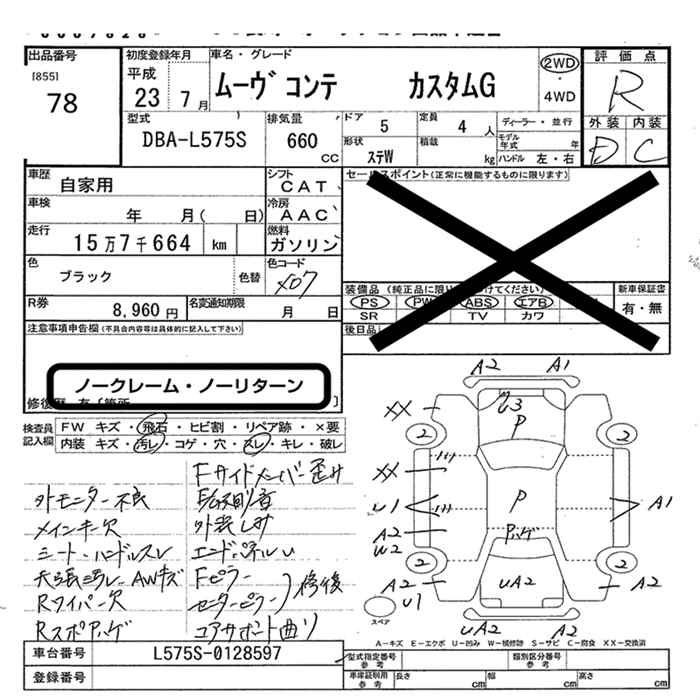 出品番号
[855]
78
初度登録年月
平成
23 7月
車名・グレード
ムーヴ コンテ カスタムG
2WD
・
4WD
評価点
R
外装 内装
D C
型式
DBA-L575S
排気量
660
CC
ドア 5
定員 4 人
ディーラー・並行
形状
ステW
積載
kg
モデル年式 年
ハンドル 左・右
車歴
自家用
シフト
CAT
車検
年 月( 日)
冷房
AAC
走行
15万7千664 km
燃料
ガソリン
色
ブラック
色替
色コード
X07
R券
8,960 円
名変通知期限
月 日
セールスポイント(正常に機能するものに限ります)
装備品
PS PW ABS エアB
SR TV カワ
新車保証書
有・無
後日品
注意事項申告欄(不具合内容等は具体的に記入して下さい)
ノークレーム・ノーリターン
検査員
記入欄
FW キズ・飛石・ヒビ割・リペア跡・×要
内装 キズ・汚レ・コゲ・穴・スレ・キレ・破レ
Fサイドメンバー歪み
外モニター不良
外装しみ
メインキー欠
エンドパネルU
シート・ハンドルスレ
天張汚レ AWキズ
Fピラー
センターピラー
修復
Rワイパー欠
Rスポハゲ
コアサポート曲り
A2 A1
XX
U3
P
2
2
XX
U1
A2
W2
P
Pハゲ
A1
2
2
A2
U1
UA2
A2
UA2 A2
スペア
A-キズ E-エクボ U-凹み W-補修跡 S-サビ C-腐食 XX-交換済
車台番号
L575S-0128597
登録番号
型式指定番号
参考
類別区分番号
参考
車庫証明用
参考
長さ cm
幅 cm
高さ cm